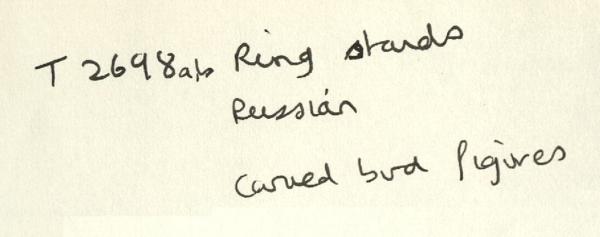 T 2698a/b Ring stands
Russian
Carved bird figures